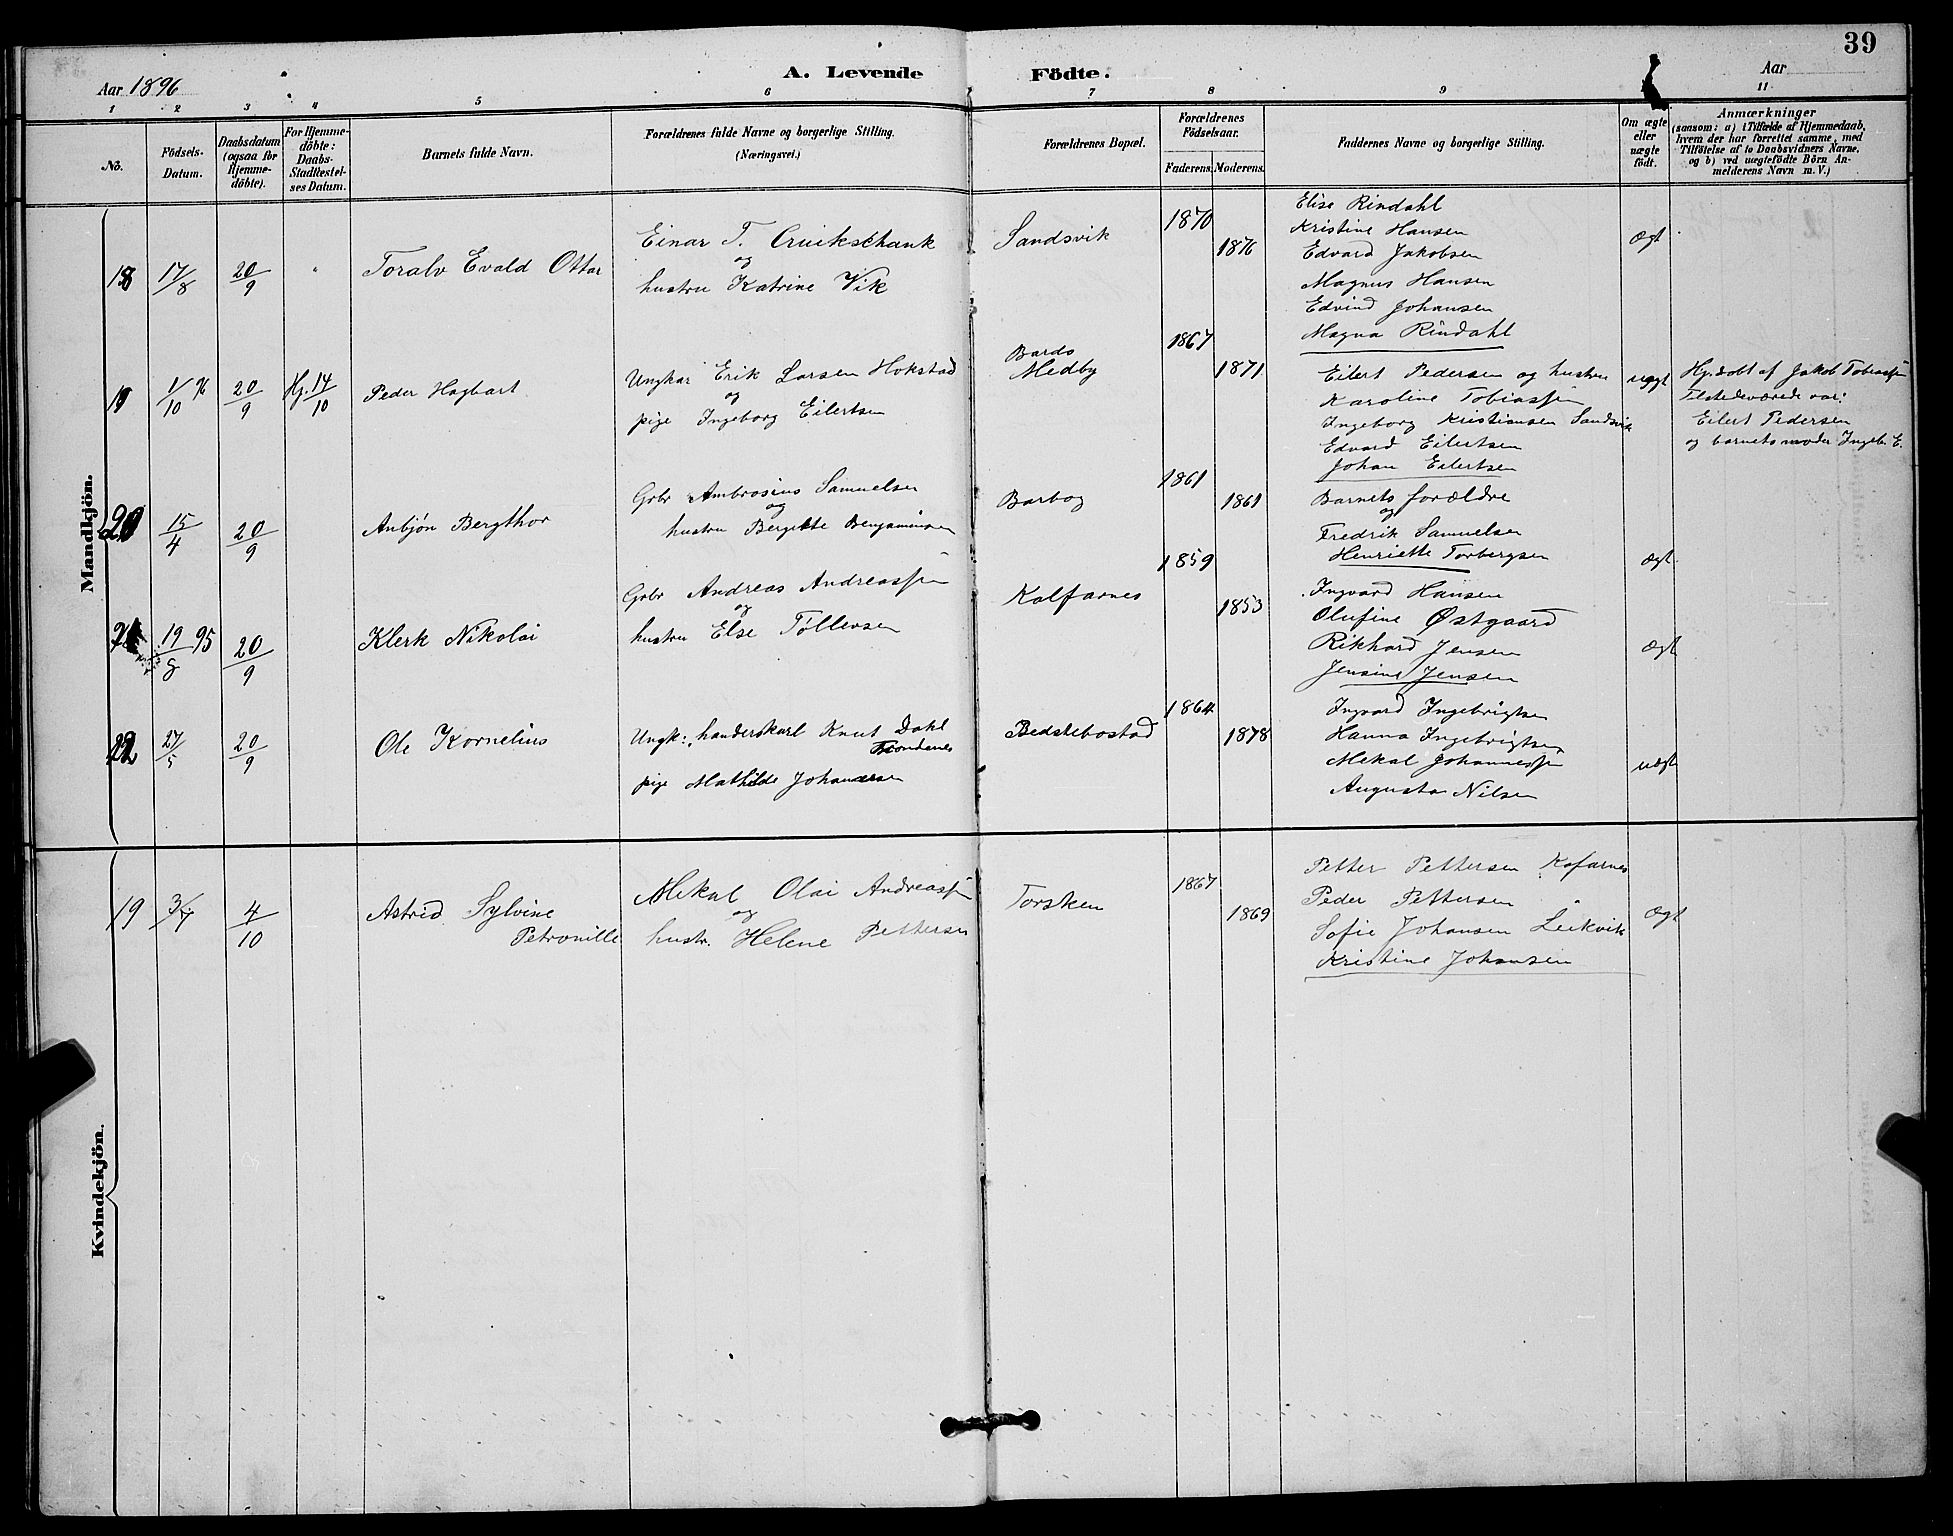 39
Aar 1896
A. Levende Födte.
Aar
1 2 3 4 5 6 7 8 9 11
No.
Födsels-Datum.
Daabsdatum (ogsaa for Hjemme-döbte).
For Hjemme-döbte: Daabs-Stadfæstel-ses Datum.
Barnets fulde Navn.
Forældrenes fulde Navne og borgerlige Stilling.
(Næringsvei.)
Forældrenes Bopæl.
Forældrenes Födselsaar.
Faderens. Moderens.
Faddernes Navne og borgerlige Stilling.
Om ægte eller uægte födt.
Anmærkninger
(saasom: a) i Tilfælde af Hjemmedaab,
hvem der har forrettet samme, med
Tilföielse af to Daabsvidners Navne,
og b) ved uægtefödte Börn An-
melderens Navn m. V.)
Mandkjön.
18 17/8 20/9 " Toralv Evald Ottar
Einar T. Cruikschank
og
hustru Katrine Vik
Sandsvik
1870
1876
Elise Rindahl
Kristine Hansen
Edvard Jakobsen
Magnus Hansen
Edvind Johansen
Magna Rindahl
Ægt
19 1/10 96 20/9 Hj. 14/10 Peder Hagbart
Ungkar Erik Larsen Hokstad
og
pige Ingeborg Eilertsen
Bardo
Medby
1867
1871
Eilert Pedersen og hustru
Karoline Tobiassen
Ingeborg Kristiansen Sandsvik
Edvard Eilertsen
Johan Eilertsen
uægt
Hj.døbt af Jakob Tobiassen
Tilstedeværede var:
Eilert Pedersen
og barnets moder Ingeb. E.
20 15/4 20/9 Anbjøn Bergthor
Grbr Ambrosius Samuelsen
og
hustru Bergitte Benjaminsen
Barbog
1861
1861
Barnets forældre
og
Fredrik Samuelsen
Henriette Torbergsen
Ægt
21 19/8 95 20/9 Klerk Nikolai
Grbr Andreas Andreassen
og
hustru Else Tøllevsen
Kalfarnes
1859
1853
Ingvard Hansen
Olufine Østgaard
Rikhard Jensen
Jensine Jensen
Ægt
22 27/5 20/9 Ole Kornelius
Ungk:, handerskarl Knut Dahl
Trondenes
pige Mathilde Johansen
Bedstebostad
1864
1878
Ingvard Ingebrigtsen
Hanna Ingebrigtsen
Mekal Johannessen
Augusta Nilsen
uægt
Kvindekjön.
19 3/7 4/10 Astrid Sylvine
Petronille
Mekal Olai Andreassen
og
hustr. Helene Pettersen
Torsken
1867
1869
Petter Pettersen Kafarnes
Peder Pettersen
Sofie Johansen Leikvik
Kristine Johansen
Ægt